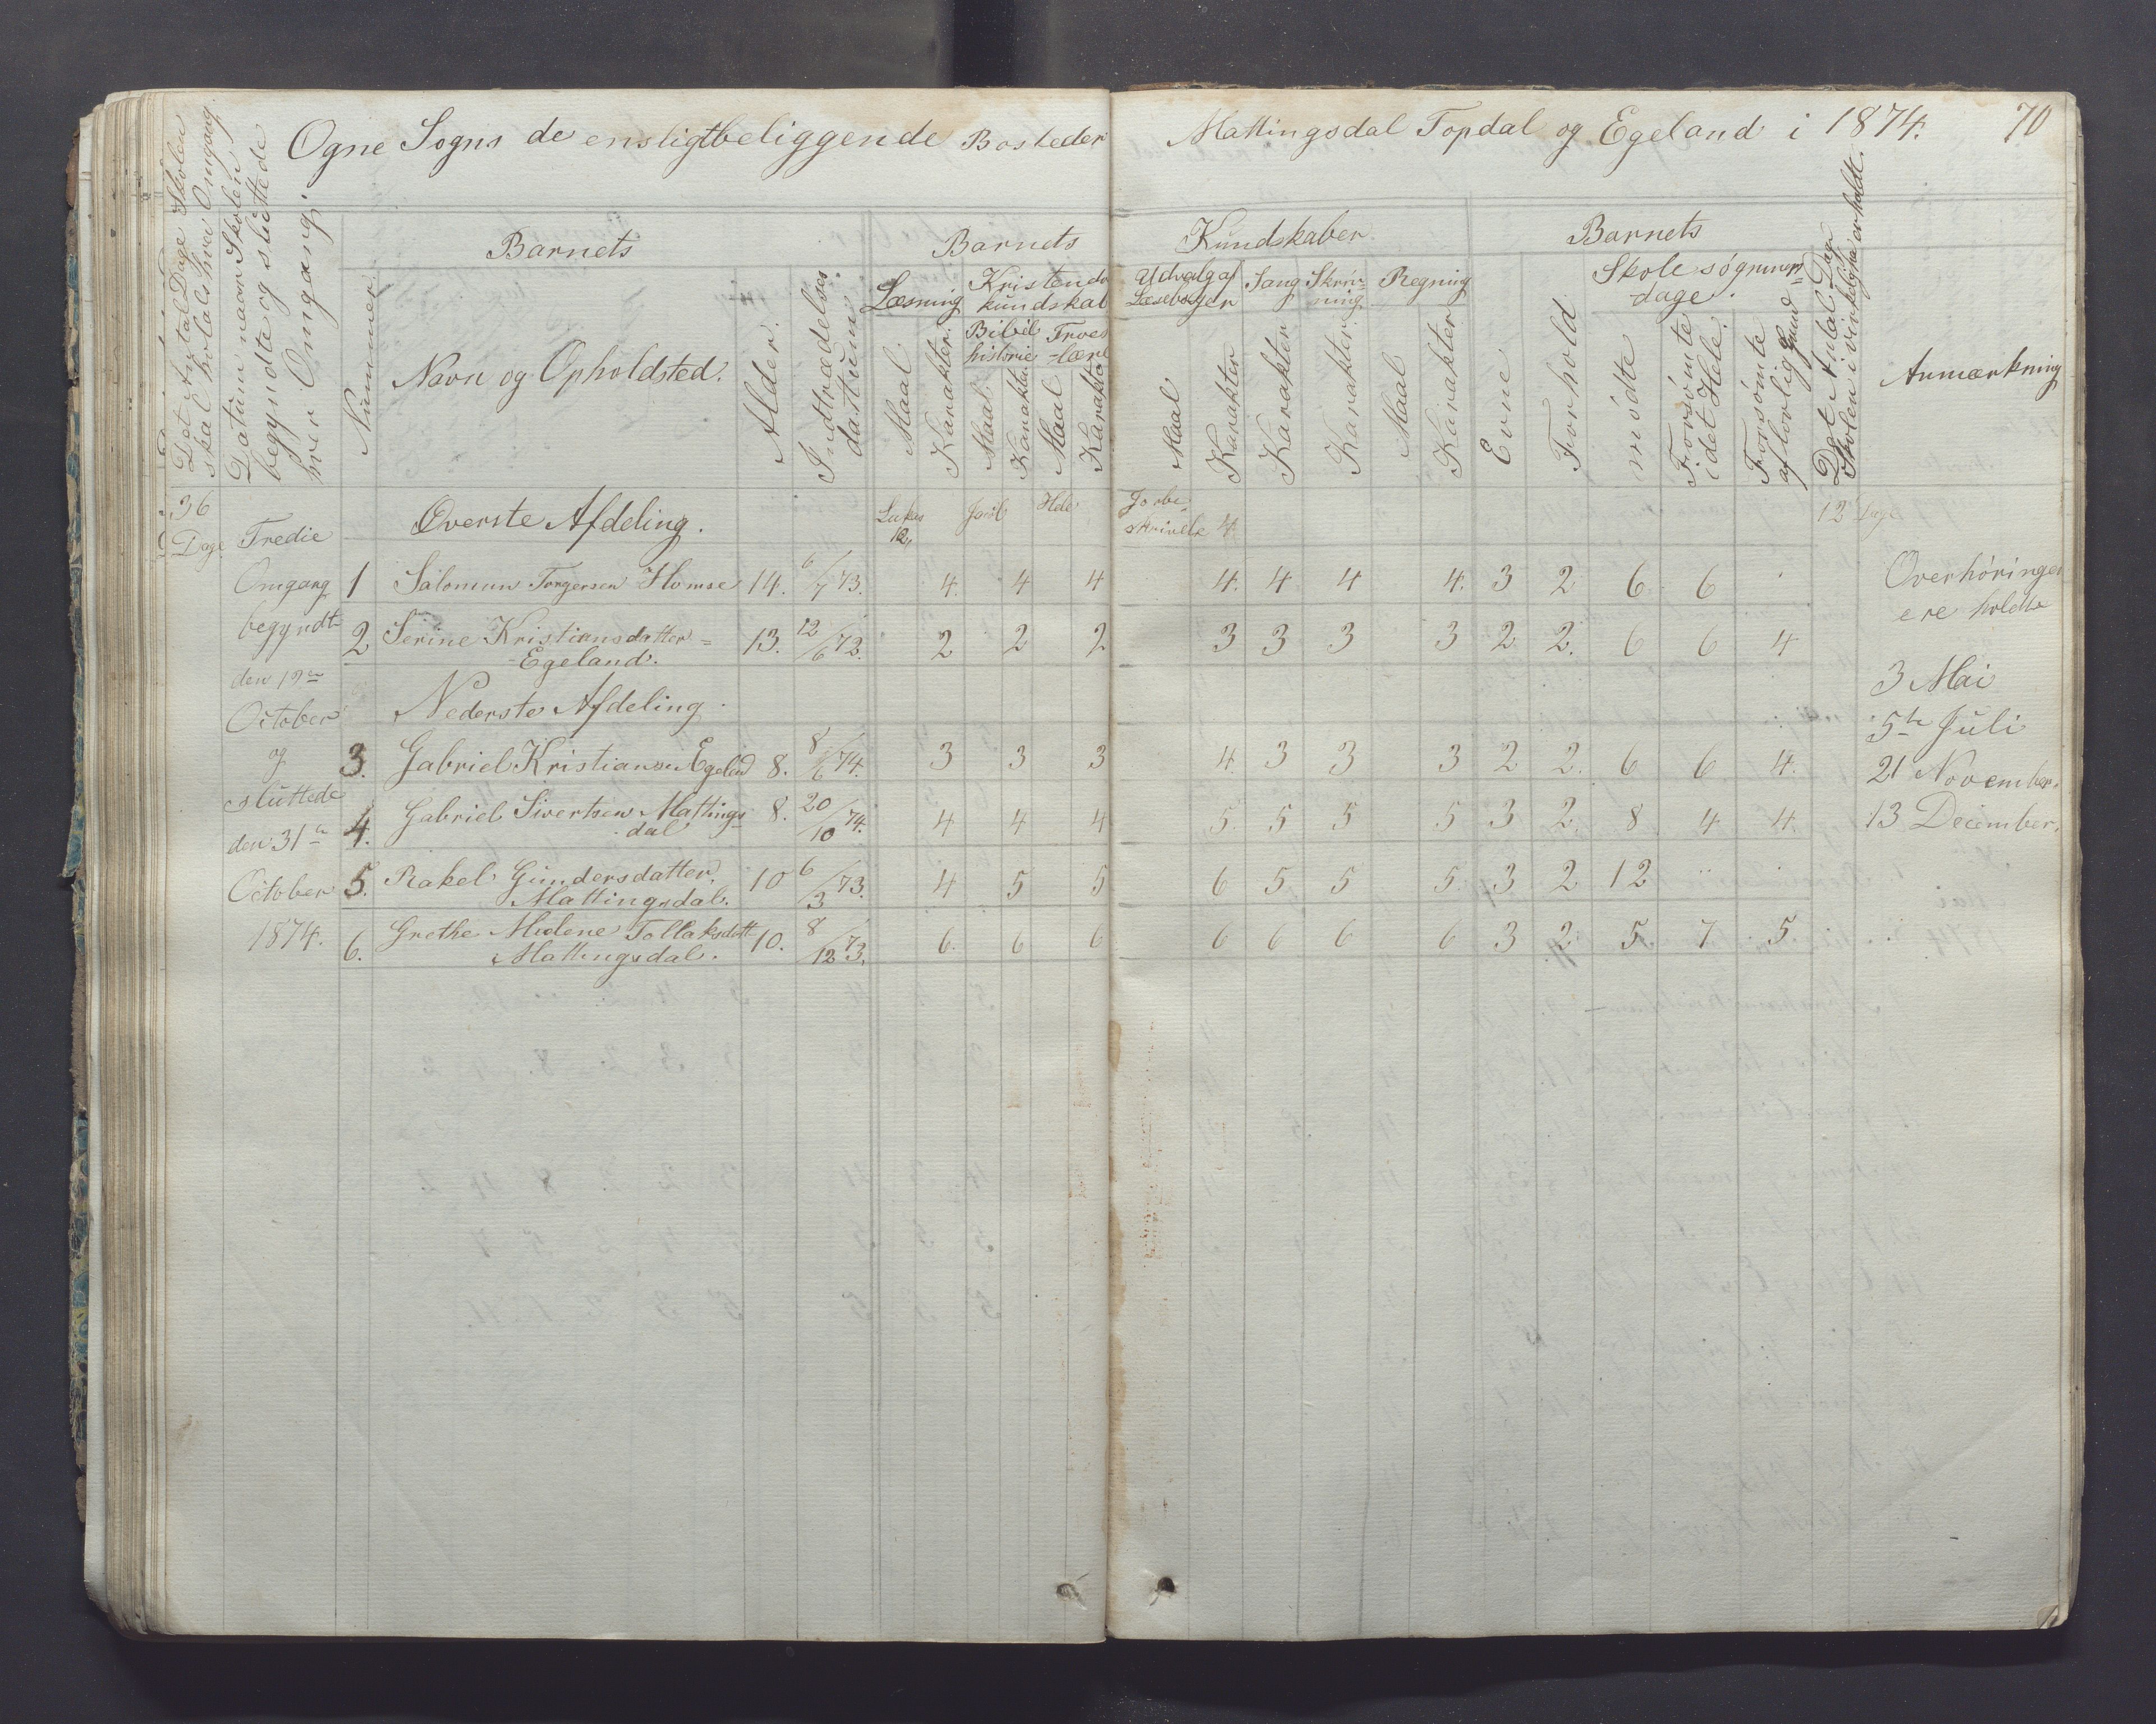 Ogne Sogns de ensligtbeliggende Bosteder Mattingsdal Topdal og Egeland i 1874. 70
Det Antal Dage Skolen
skal holdes hver Omgang.
Datum naar Skolen
begyndte og sluttede
hver Omgang.
Barnets Barnets Kundskaber Barnets
Nummer
Navn og Opholdsted.
Alder.
Indtrædelses
datum
Læsning
Maal
Karakter.
Kristendoms
kundskab
Bibel
historie
Maal
Karakter
Troes
-lære
Maal
Karakter
Udvalg af
Læsebøger
Maal
Karakter
Sang
Karakter
Skriv-
ning
Karakter
Regning
Maal
Karakter
Evne
Forhold
Skolesøgnings
dage.
mødte
Forsømte
i det Hele.
Forsømte
af lovlig Grund
Det Antal Dage
Skolen i virkelighe er holdt.
Anmærkning
36
Dage
Tredie
Omgang
begyndt
den 19de
October
og
sluttede
den 31te
October
1874.
Øverste Afdeling. Lukas
12,
Jorbe-
skrivelse 4
12 Dage
1 Salomon Torgersen Homse 14. 6/7 73. 4. 4 4 4. 4 4 4. 3 2 6 6
2 Serine Kristiansdatter =
Egeland. 13. 12/6 72. 2 2 2 3 3 3 3 2 2. 6 6 4
Nederste Afdeling.
3. Gabriel Kristiansen Egeland 8. 8/6 74. 3 3 3 4. 3 3 3 2 2. 6 6 4.
4. Gabriel Sivertsen Mattings-
dal 8. 20/10 74. 4 4 4 5. 5 5 5 3 2. 8 4 4.
5. Rakel Gundersdatter,
Mattingsdal. 10 6/3 73. 4 5 5 6 5 5 5. 3 2 12 "
6. Grethe Malene Tollaksdatt
Mattingsdal. 10. 8/12 73. 6. 6 6 6 6 6 6 3 2 5. 7 5
Overhøringer
ere holdte
3 Mai
5te Juli
21 November.
13 December.